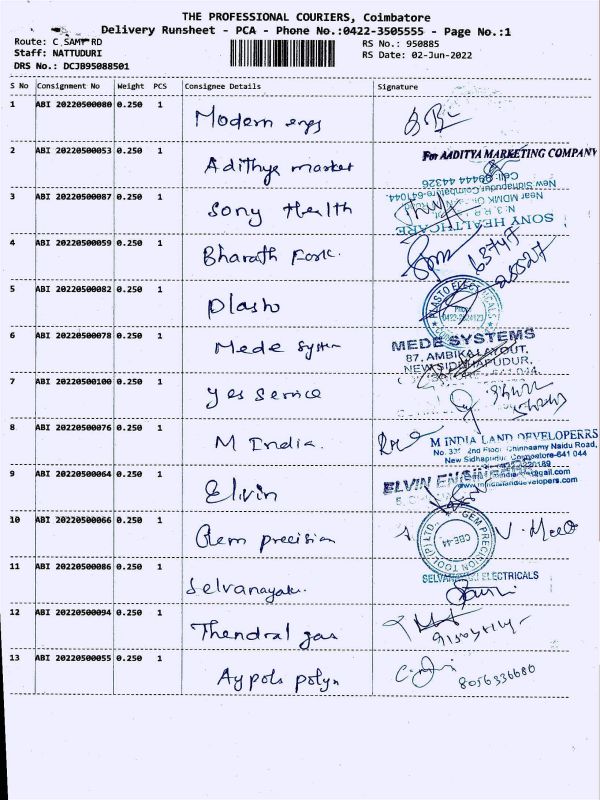 THE PROFESSIONAL COURIERS, Coimbatore
Delivery Runsheet - PCA - Phone No.:0422-3505555 - Page No.:1
Route: C SAMY RD
Staff: NATTUDURI
DRS No.: DCJB95088501
RS No.: 950885
RS Date: 02-Jun-2022
S No Consignment No Weight PCS Consignee Details Signature
1 ABI 20220500080 0.250 1 Modern engs
2 ABI 20220500053 0.250 1 Adithya market For AADITYA MARKETING COMPANY
3 ABI 20220500087 0.250 1 Sony Health
SONY HEALTHCARE
Near MDMK
New Sidhapudur, Coimbatore-641044
Cell: 99444 44326
4 ABI 20220500059 0.250 1 Bharath Fork.
5 ABI 20220500082 0.250 1 Plasto
PLASTO ELECTRICALS
6 ABI 20220500078 0.250 1 Mede System
MEDE SYSTEMS
87, AMBIKA LAYOUT,
NEW SIDHAPUDUR,
7 ABI 20220500100 0.250 1 Yes Service
8 ABI 20220500076 0.250 1 M India.
M INDIA LAND DEVELOPERRS
2nd Floor, Chinnasamy Naidu Road,
New Sidhapudur, Coimbatore-641 044
9 ABI 20220500064 0.250 1 Elvin
ELVIN ENGINEERS
10 ABI 20220500066 0.250 1 Gem precision
GEM PRECISION TOOL (P) LTD.,
CBE-44
11 ABI 20220500086 0.250 1 Selvanayaki.
ELECTRICALS
12 ABI 20220500094 0.250 1 Thendral gas
13 ABI 20220500055 0.250 1 Aypols polyn
8056336680